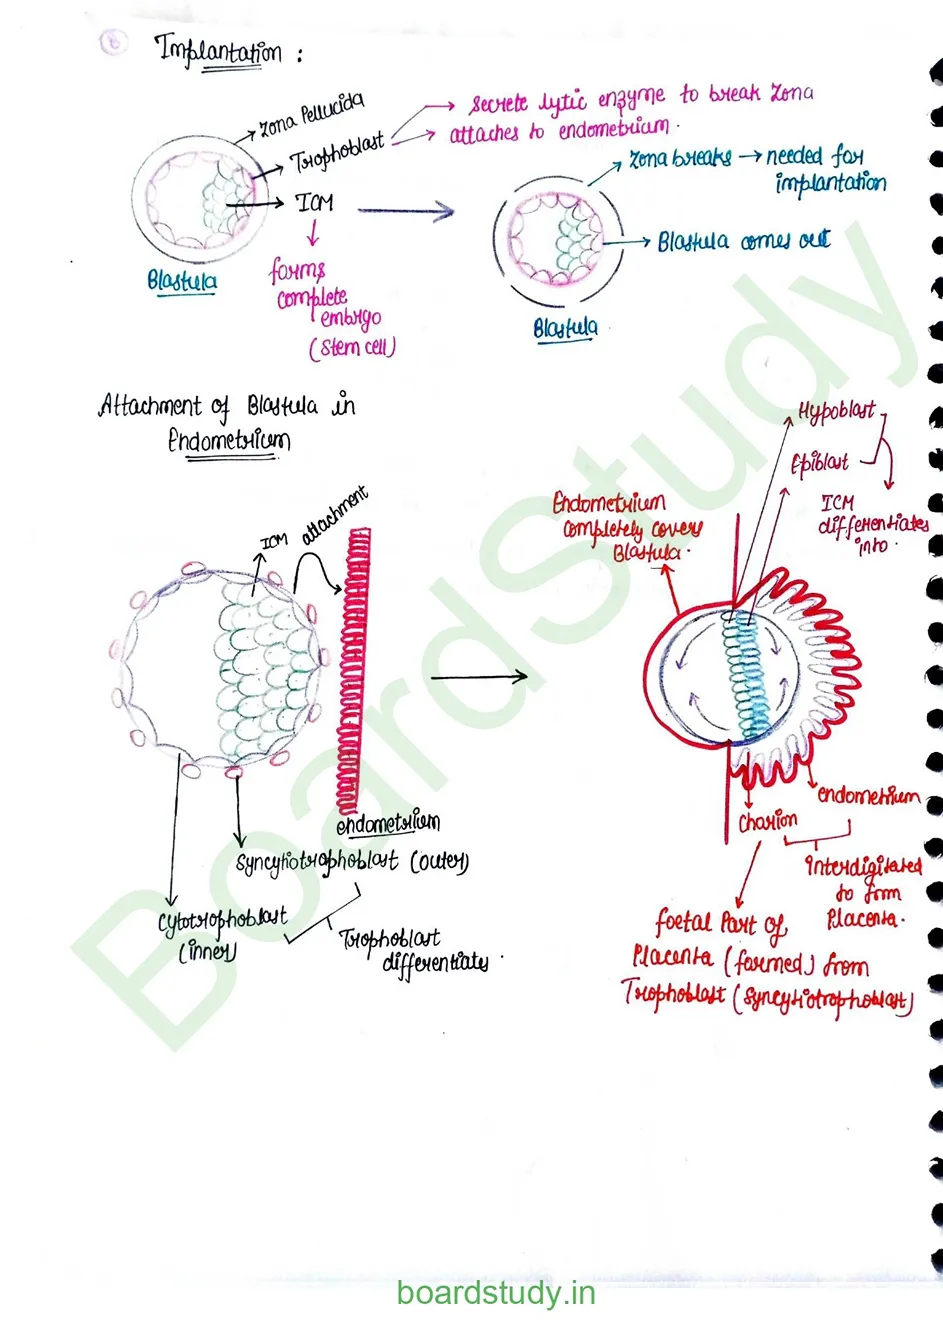 6
Implantation :
Zona Pellucida
Trophoblast
secrete lytic enzyme to break zona
attaches to endometrium.
ICM
forms
complete
embryo
(stem cell)
Blastula
Zona breaks → needed for
implantation
Blastula comes out
Blastula
Attachment of Blastula in
Endometrium
ICM
attachment
endometrium
Syncytiotrophoblast (outer)
Cytotrophoblast
(inner)
Trophoblast
differentiates.
Hypoblast
Epiblast
ICM
differentiates
into.
Endometrium
completely covers
Blastula.
endometrium
Chorion
Interdigitated
to form
Placenta.
foetal Part of
Placenta (formed) from
Trophoblast (syncytiotrophoblast)
BoardStudy
boardstudy.in